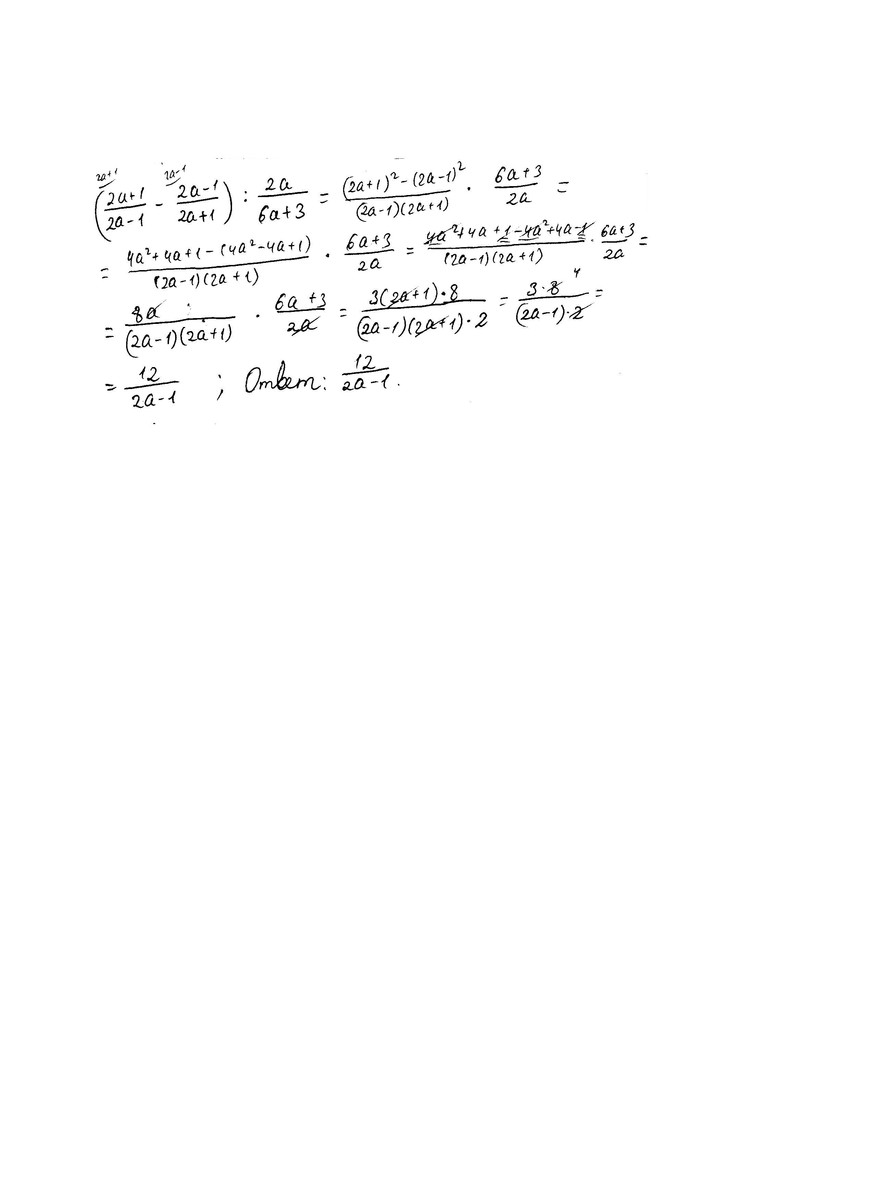 ((2a+1)/(2a-1) - (2a-1)/(2a+1)) : 2a/(6a+3) = ((2a+1)² - (2a-1)²)/((2a-1)(2a+1)) · (6a+3)/2a =
= (4a²+4a+1-(4a²-4a+1))/((2a-1)(2a+1)) · (6a+3)/2a = (4a²+4a+1-4a²+4a-1)/((2a-1)(2a+1)) · (6a+3)/2a =
= 8a/((2a-1)(2a+1)) · (6a+3)/2a = (3(2a+1)·8)/((2a-1)(2a+1)·2) = (3·8)/((2a-1)·2) =
= 12/(2a-1) ; Ответ: 12/(2a-1).